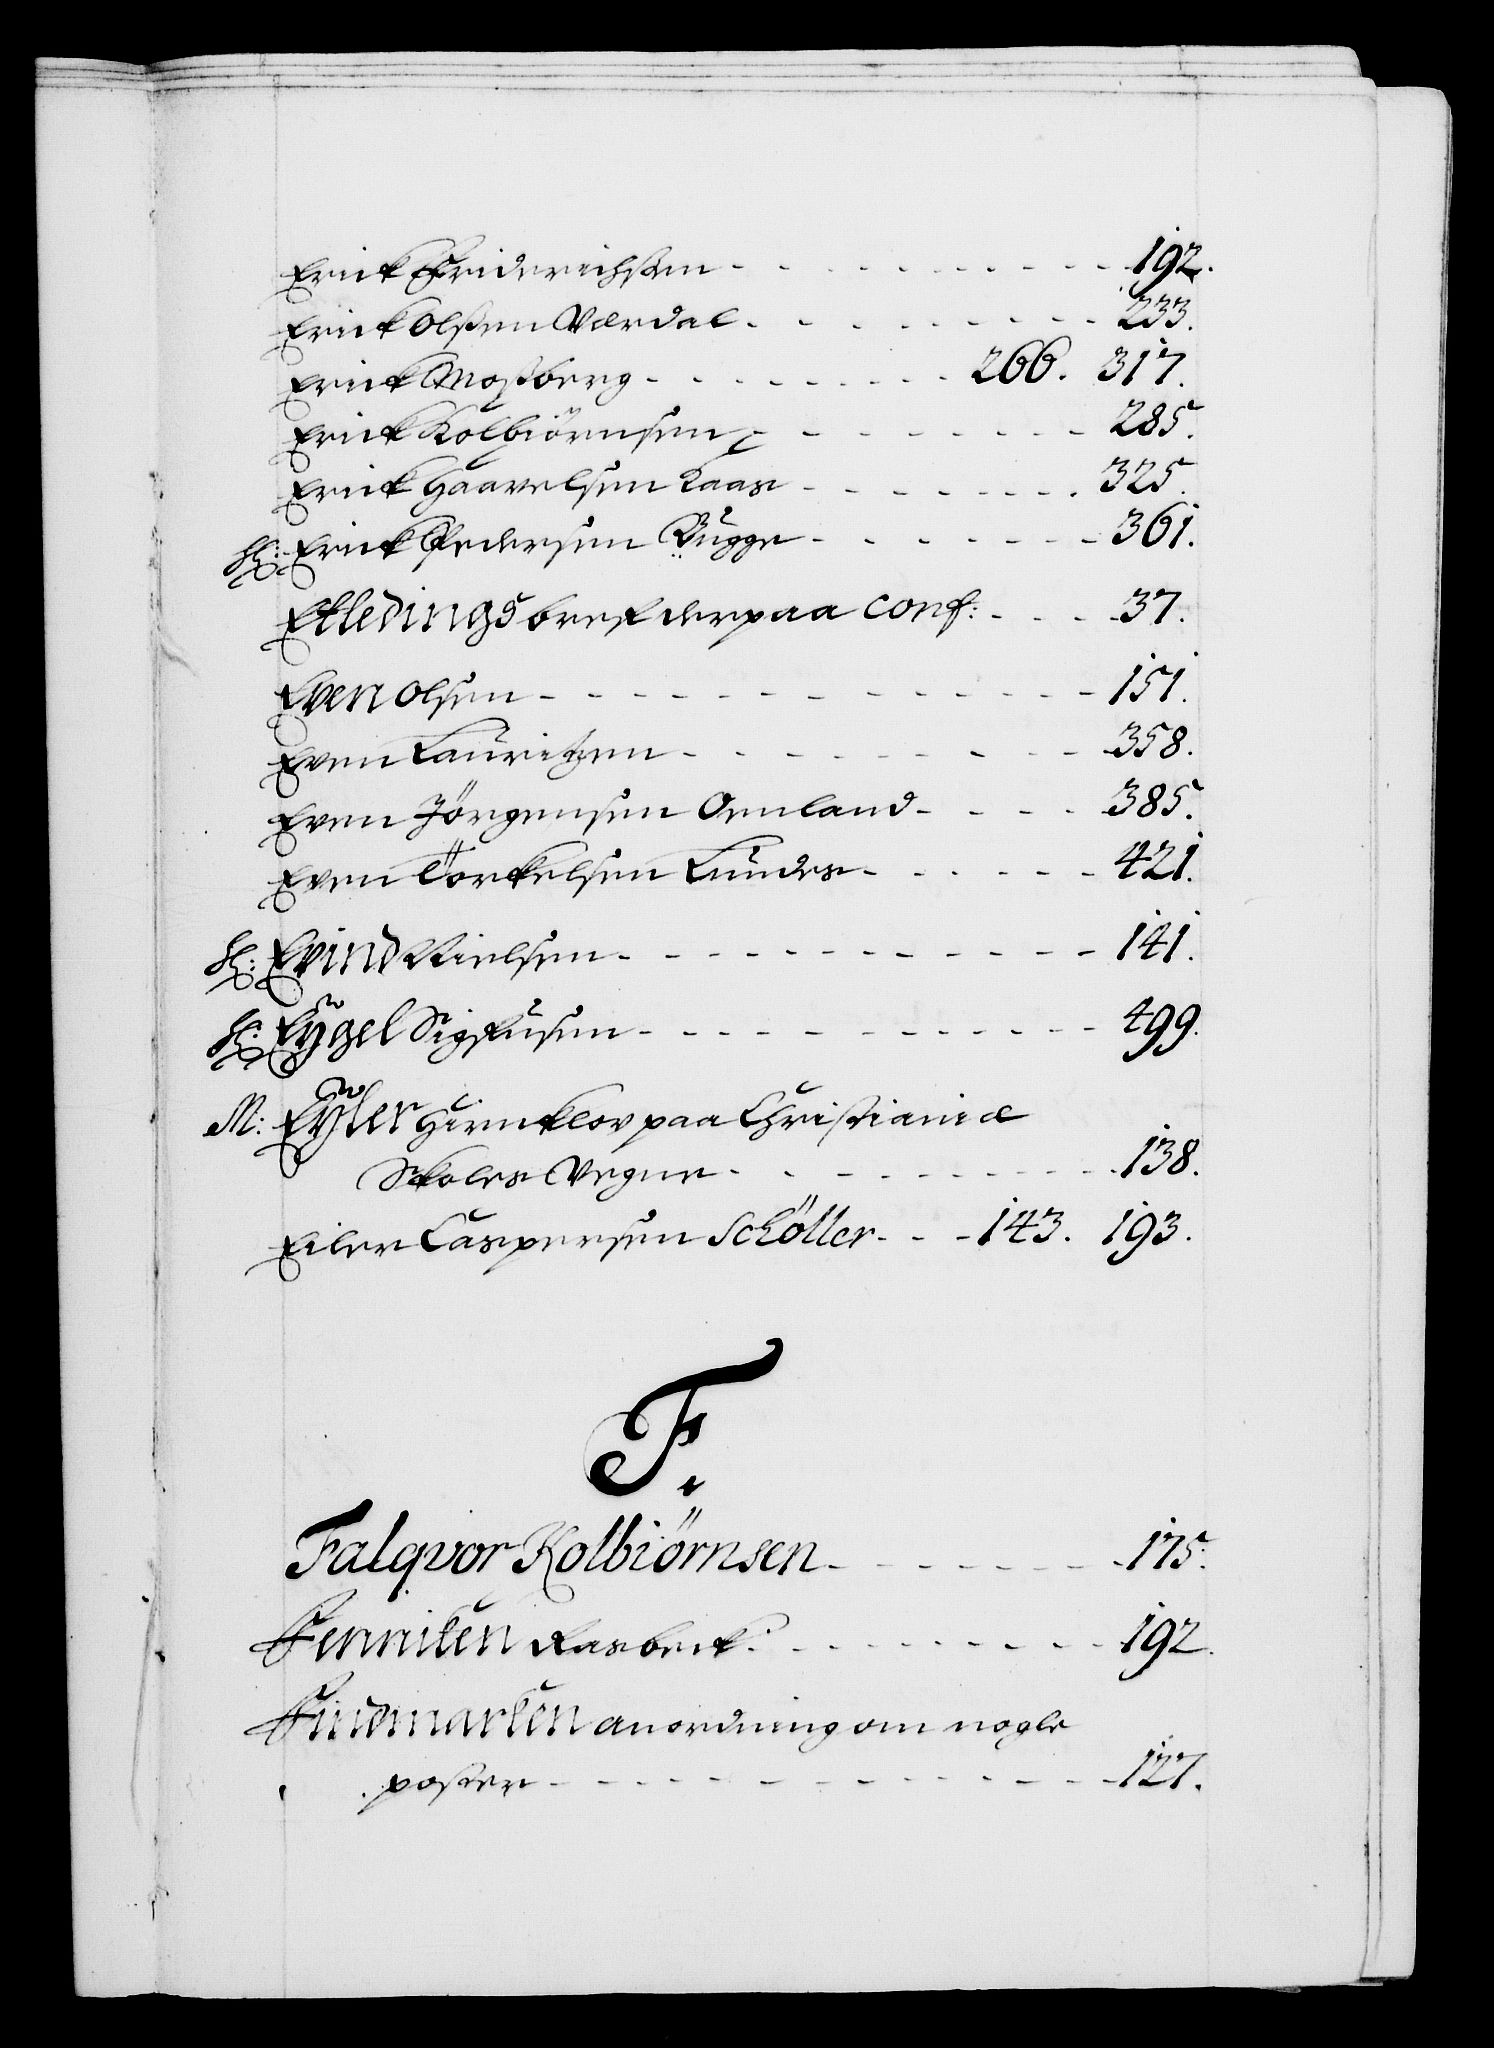 Erick Friderichsen - - - - - - - - - - - 192.
Erick Olsen Værdal - - - - - - - - - 233.
Erick Mosberg - - - - - - - - 266. 317.
Erick Kolbiörnsen - - - - - - - - 285.
Erick Haavelsen Kaas - - - - - - - 325.
H: Erick Pedersen Bugge - - - - - - - 361.
Etledings bref derpaa conf: - - - 37.
Even Olsen - - - - - - - - - - - - 151.
Even Lauritzen - - - - - - - - - 358.
Even Jörgensen Omland - - - - 385.
Even Törkelsen Lundes - - - - - - 421.
H: Evind Nielsen - - - - - - - - - - - 141.
H: Eygel Sigfusen - - - - - - - - - - - 499.
M: Eyler Hirnklov paa Christianiæ
Skoles Vegne - - - - - - - - - - 138.
Eiler Caspersen Schöller - - - 143. 193.
F.
Falqvor Kolbiörnsen - - - - - - - 175.
Fenniken Rasbek: - - - - - - - - 192.
Findmarken anordning om nogle
poster - - - - - - - - - - - - 127.